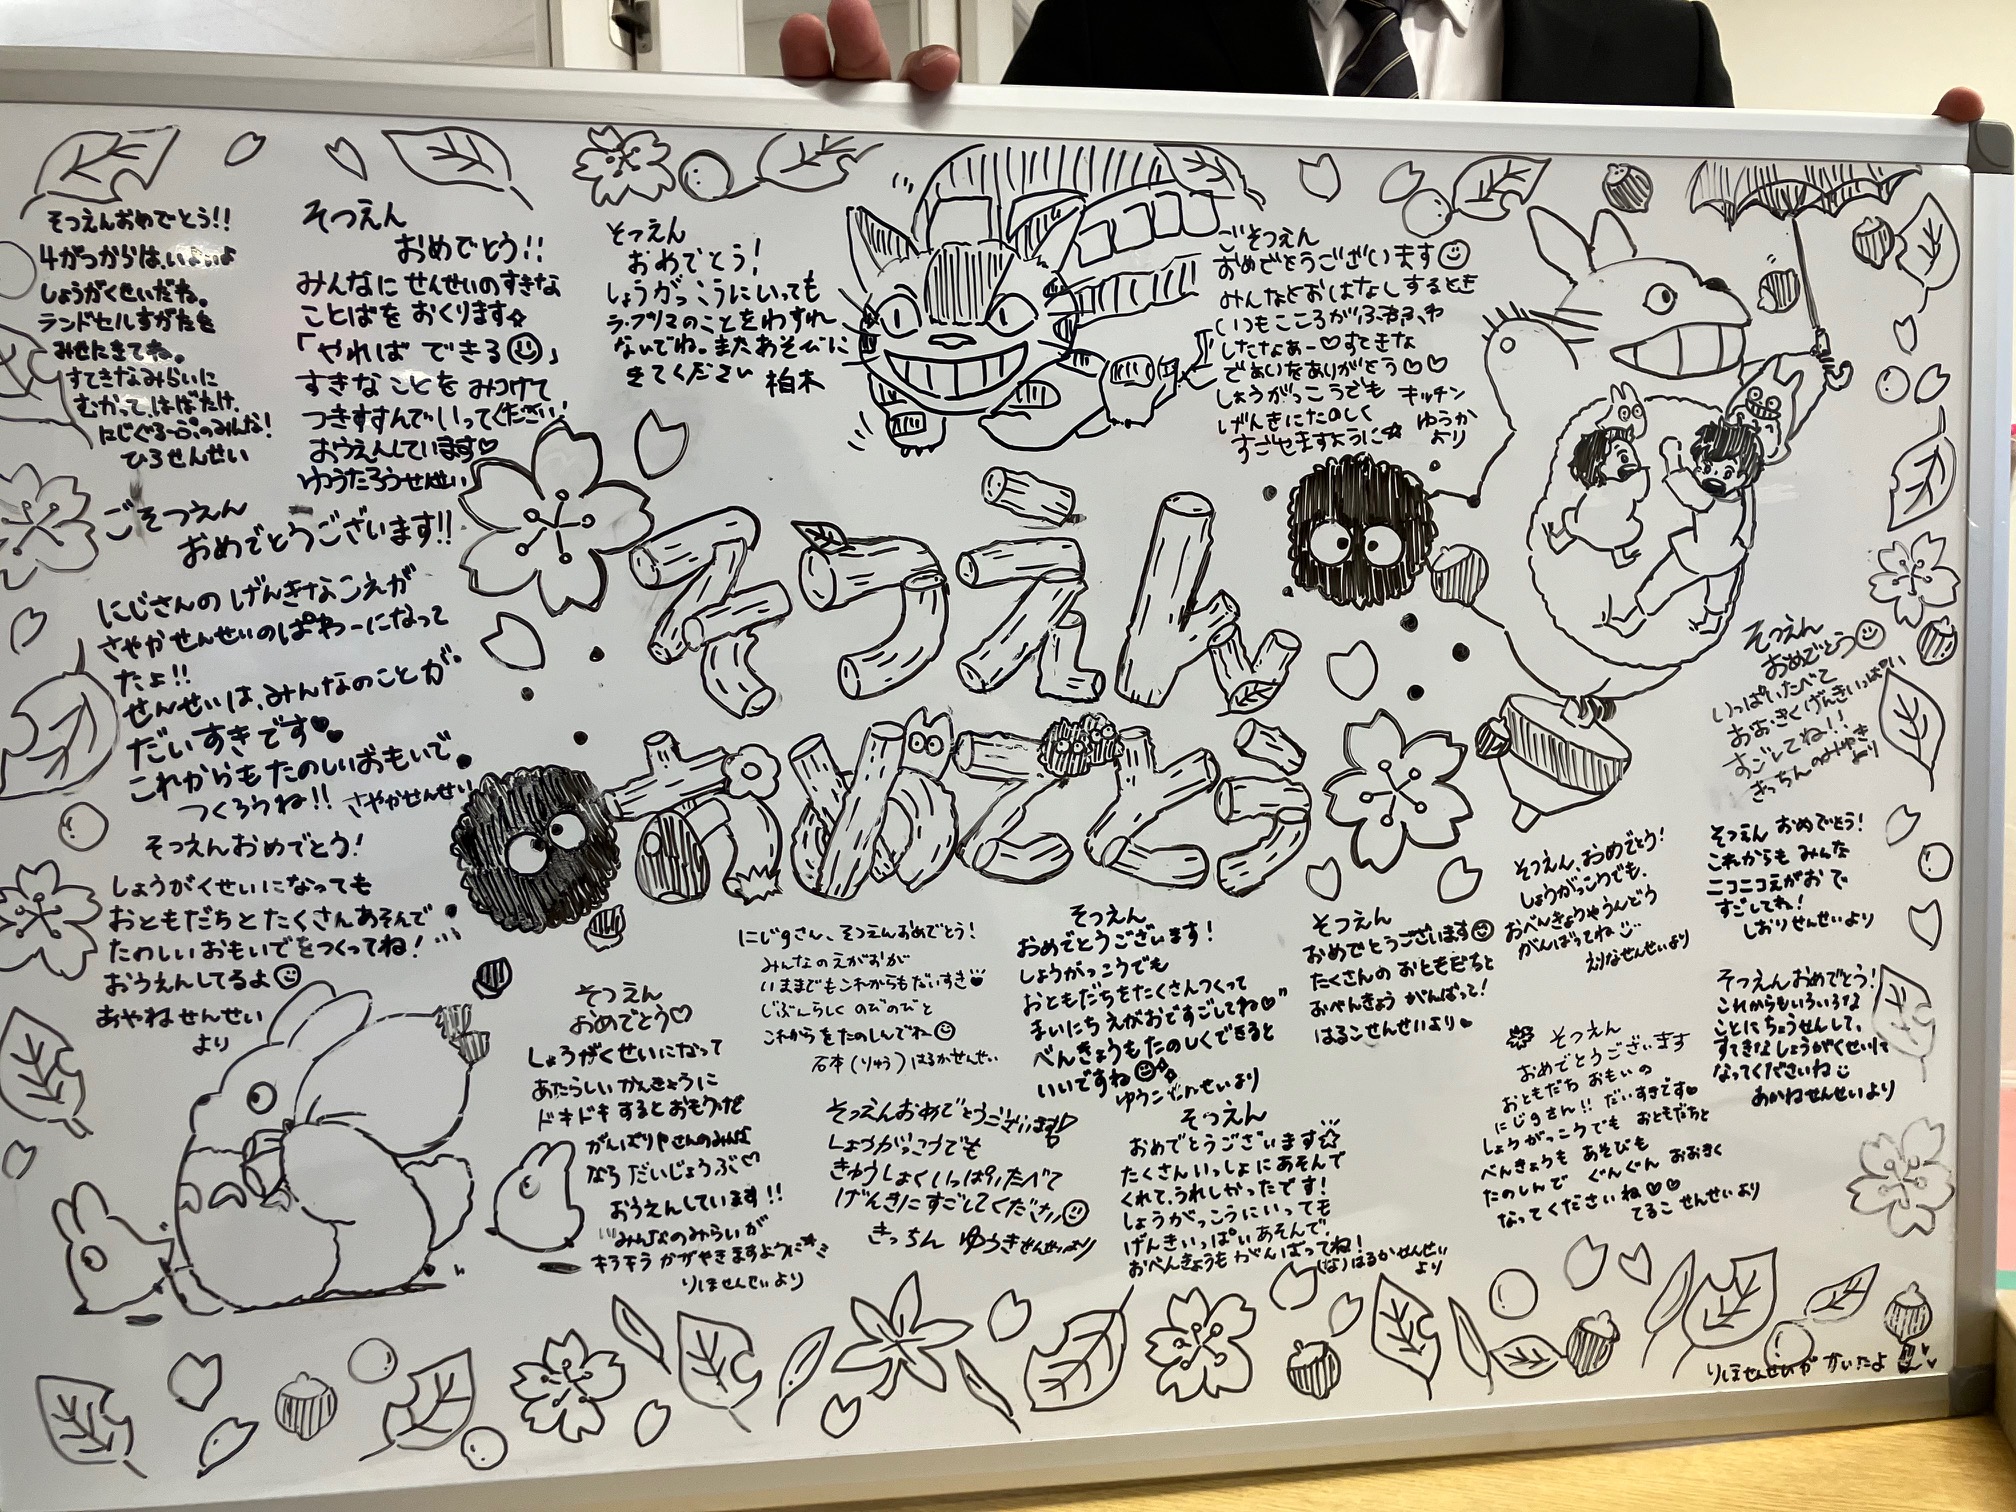 そつえんおめでとう!!
4がつからは、いよいよ
しょうがくせいだね。
ランドセルすがたを
みせにきてね。
すてきなみらいに
むかって、はばたけ、
にじぐるーぷのみんな!
ひろせんせい
そつえん
おめでとう!!
みんなに せんせいのすきな
ことばを おくります☆
「やれば できる☺」
すきな ことを みつけて
つきすすんでいってください!
おうえんしています♡
ゆうたろうせんせい
そつえん
おめでとう!
しょうがっこうにいっても
ラ・プリマのことをわすれ
ないでね。またあそびに
きてください 柏木
ごそつえん
おめでとうございます☺
みんなとおはなしするとき
いつもこころが
したなぁー♡すてきな
であいをありがとう♡♡
しょうがっこうでも キッチン
げんきにたのしく ゆうか
すごせますように☆ より
ごそつえん
おめでとうございます!!
にじさんの げんきなこえが
さやかせんせいのぱわーになって
たよ!!
せんせいは、みんなのことが
だいすきです♥
これからもたのしいおもいで
つくろうね!! さやかせんせい
そつえんおめでとう!
しょうがくせいになっても
おともだちとたくさんあそんで
たのしいおもいでをつくってね!
おうえんしてるよ☺
あやねせんせい
より
そつえん
おめでとう♡
しょうがくせいになって
あたらしいかんきょうに
ドキドキするとおもうけど
がんばりやさんのみんな
なら だいじょうぶ♡
おうえんしています!!
みんなのみらいが
キラキラ かがやきますように
りほせんせいより
にじgさん、そつえんおめでとう!
みんなのえがおが
いままでもこれからもだいすき♡
じぶんらしく のびのびと
これからをたのしんでね☺
石本(りゅう)はるかせんせい
そつえんおめでとうございます
しょうがっこうでも
きゅうしょくいっぱいたべて
げんきにすごしてください☺
きっちん ゆうきせんせいより
そつえん
おめでとうございます!
しょうがっこうでも
おともだちをたくさんつくって
まいにちえがおですごしてね♡
べんきょうもたのしくできると
いいですね☺
ゆうこせんせいより
そつえん
おめでとうございます☆
たくさんいっしょにあそんで
くれて、うれしかったです!
しょうがっこうにいっても
げんきいっぱいあそんで、
おべんきょうもがんばってね!
(な)はるかせんせい
より
そつえん
おめでとうございます☺
たくさんの おともだちと
おべんきょう がんばって!
はるこせんせいより
そつえん、おめでとう!
しょうがっこうでも、
おべんきょうやうんどう
がんばってね
えりなせんせいより
そつえん
おめでとうございます
おともだち おもいの
にじgさん!! だいすきです♥
しょうがっこうでも おともだちと
べんきょうも あそびも
たのしんで ぐんぐん おおきく
なってくださいね♡♡
てるこ せんせいより
そつえん
おめでとう☺
いっぱいたべて
おおきくげんきいっぱい
すごしてね!!
きっちんのみゆき
より
そつえん おめでとう!
これからも みんな
ニコニコえがお で
すごしてね!
しおりせんせいより
そつえんおめでとう!
これからもいろいろな
ことにちょうせんして、
すてきなしょうがくせいに
なってくださいね
あかねせんせいより
りほせんせいが かいたよ